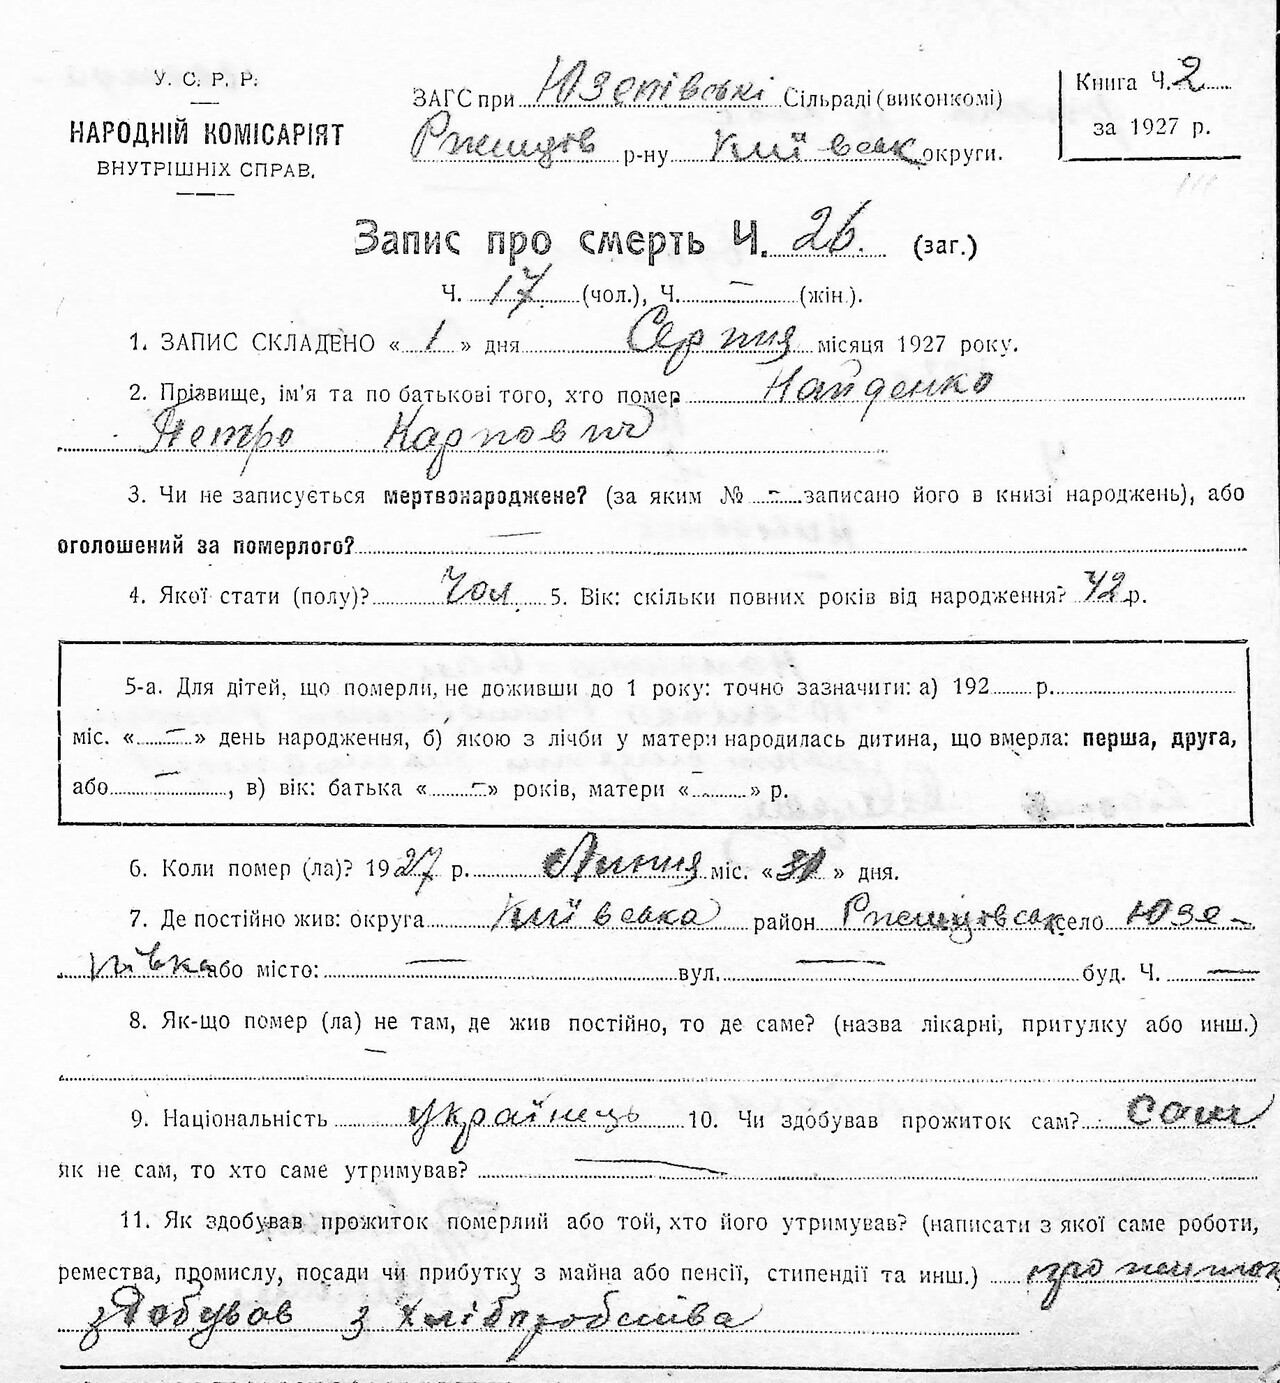 У. С. Р. Р.
НАРОДНІЙ КОМІСАРІЯТ
ВНУТРІШНІХ СПРАВ.
ЗАГС при Юзепівські Сільраді (виконкомі)
Ржищів р-ну Київськ округи.
Книга Ч. 2
за 1927 р.
Запис про смерть Ч. 26. (заг.)
Ч. 17. (чол.), Ч. – (жін.).
1. ЗАПИС СКЛАДЕНО «1» дня Серпня місяця 1927 року.
2. Прізвище, ім'я та по батькові того, хто помер Найденко
Петро Карпович
3. Чи не записується мертвонароджене? (за яким № – записано його в книзі народжень), або
оголошений за померлого? —
4. Якої стати (полу)? Чол. 5. Вік: скільки повних років від народження? 42 р.
5-а. Для дітей, що померли, не доживши до 1 року: точно зазначити: а) 192 р.
міс. «–» день народження, б) якою з лічби у матери народилась дитина, що вмерла: перша, друга,
або –, в) вік: батька «–» років, матери «–» р.
6. Коли помер (ла)? 1927 р. Липня міс. «31» дня.
7. Де постійно жив: округа Київська район Ржищівськ село Юзе-
півка або місто: — вул. — буд. Ч. —
8. Як-що помер (ла) не там, де жив постійно, то де саме? (назва лікарні, притулку або инш.)
—
9. Національність українець 10. Чи здобував прожиток сам? сам
як не сам, то хто саме утримував? —
11. Як здобував прожиток померлий або той, хто його утримував? (написати з якої саме роботи,
ремества, промислу, посади чи прибутку з майна або пенсії, стипендії та инш.) прожиток
здобував з хліборобства